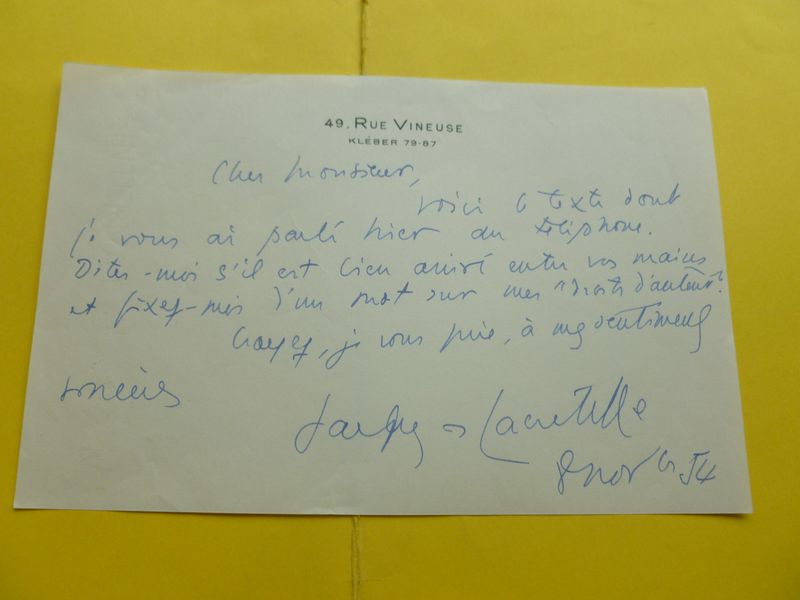 49, RUE VINEUSE
KLÉBER 79-87
Cher Monsieur,
voici le texte dont
je vous ai parlé hier au téléphone.
Dites-moi s'il est bien arrivé entre vos mains
et fixez-moi d'un mot sur mes "droits d'auteur".
Croyez, je vous prie, à mes sentiments
sincères
Jacques de Lacretelle
8 nov 54